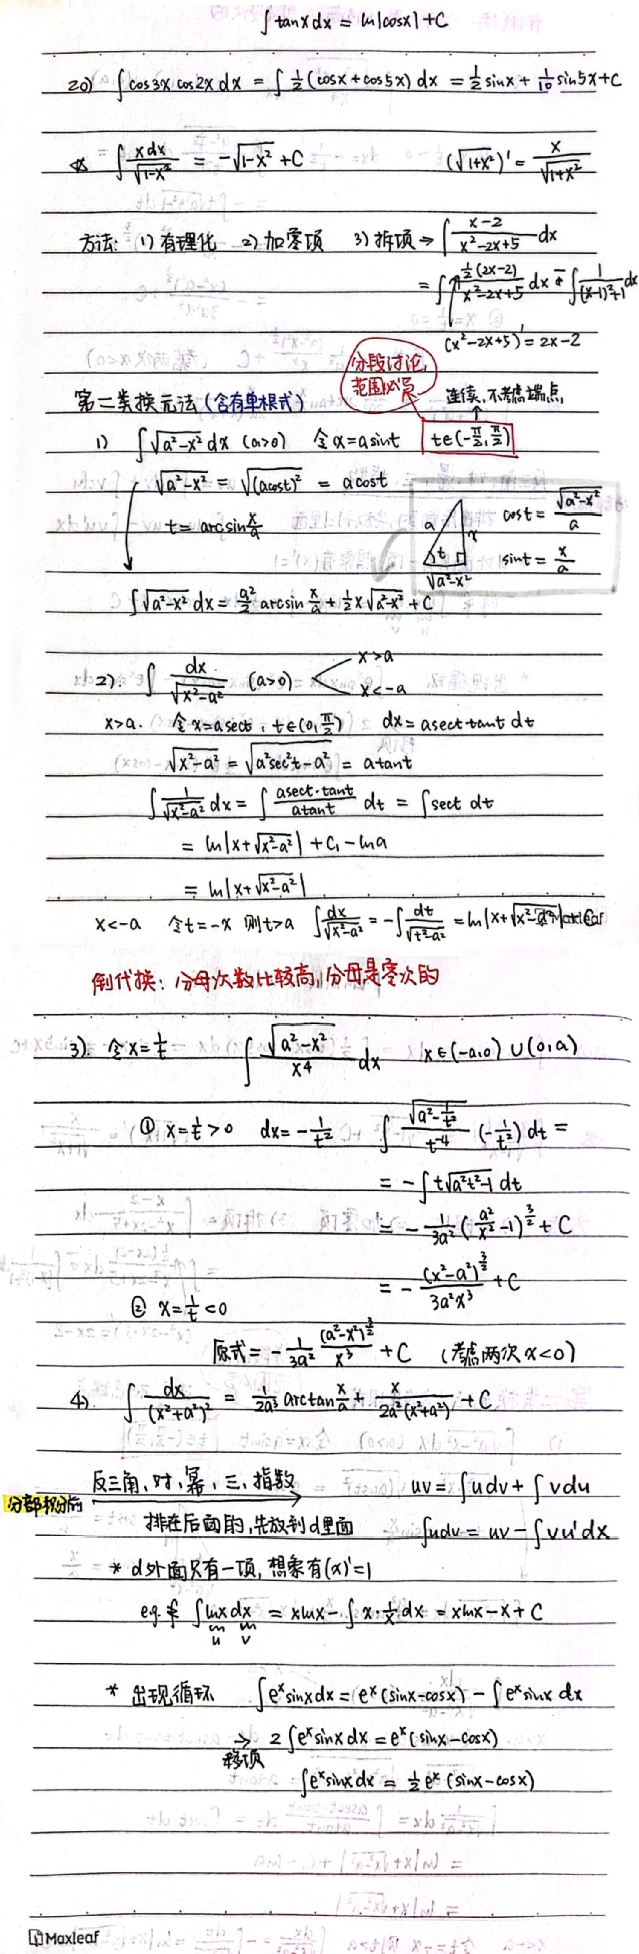 ∫ tanx dx = ln|cosx| + C
20) ∫ cos3x cos2x dx = ∫ 1/2 (cosx + cos5x) dx = 1/2 sinx + 1/10 sin5x + C
∫ xdx/√(1-x²) = -√(1-x²) + C (√(1+x²))' = x/√(1+x²)
方法: 1) 有理化 2) 加零项 3) 拆项 → ∫ (x-2)/(x²-2x+5) dx
= ∫ 1/2(2x-2)/(x²-2x+5) dx - ∫ 1/((x-1)²+1) dx
(x²-2x+5)' = 2x-2
分段讨论,
范围必写
第二类换元法 (含有单根式) 连续,不考虑端点
1) ∫ √(a²-x²) dx (a>0) 令x=asint t∈(-π/2, π/2)
√(a²-x²) = √(acost)² = acost
t = arcsin x/a
a t x √(a²-x²)
cost = √(a²-x²)/a
sint = x/a
∫ √(a²-x²) dx = a²/2 arcsin x/a + 1/2 x√(a²-x²) + C
2). ∫ dx/√(x²-a²) (a>0) x>a
x<-a
x>a. 令x=asect, t∈(0, π/2) dx = asect tant dt
√(x²-a²) = √(a²sec²t-a²) = atant
∫ 1/√(x²-a²) dx = ∫ asect·tant/atant dt = ∫ sect dt
= ln|x+√(x²-a²)| + C₁ - lna
= ln|x+√(x²-a²)|
x<-a 令t=-x 则t>a ∫ dx/√(x²-a²) = -∫ dt/√(t²-a²) = ln|x+√(x²-a²)|
倒代换: 分母次数比较高, 分母是零次的
3). 令x=1/t ∫ √(a²-x²)/x⁴ dx x∈(-a,0)∪(0,a)
① x=1/t>0 dx=-1/t² ∫ √(a²-1/t²)/t⁻⁴ (-1/t²) dt =
= -∫ t√(a²t²-1) dt
= -1/3a² (a²/x²-1)^(3/2) + C
= -(x²-a²)^(3/2)/3a²x³ + C
② x=1/t<0
原式 = -1/3a² (a²-x²)^(3/2)/x³ + C (考虑两次x<0)
4). ∫ dx/(x²+a²)² = 1/2a³ arctan x/a + x/2a²(x²+a²) + C
反三角, 对, 幂, 三, 指数 uv = ∫ udv + ∫ vdu
分部积分法 排在后面的, 先放到d里面 ∫ udv = uv - ∫ vu'dx
* d外面只有一项, 想象有(x)'=1
e.g. ∫ lnx dx = xlnx - ∫ x·1/x dx = xlnx - x + C
u v
* 出现循环 ∫ eˣsinx dx = eˣ(sinx-cosx) - ∫ eˣsinx dx
→ 2∫ eˣsinx dx = eˣ(sinx-cosx)
移项
∫ eˣsinx dx = 1/2 eˣ(sinx-cosx)
Maxleaf